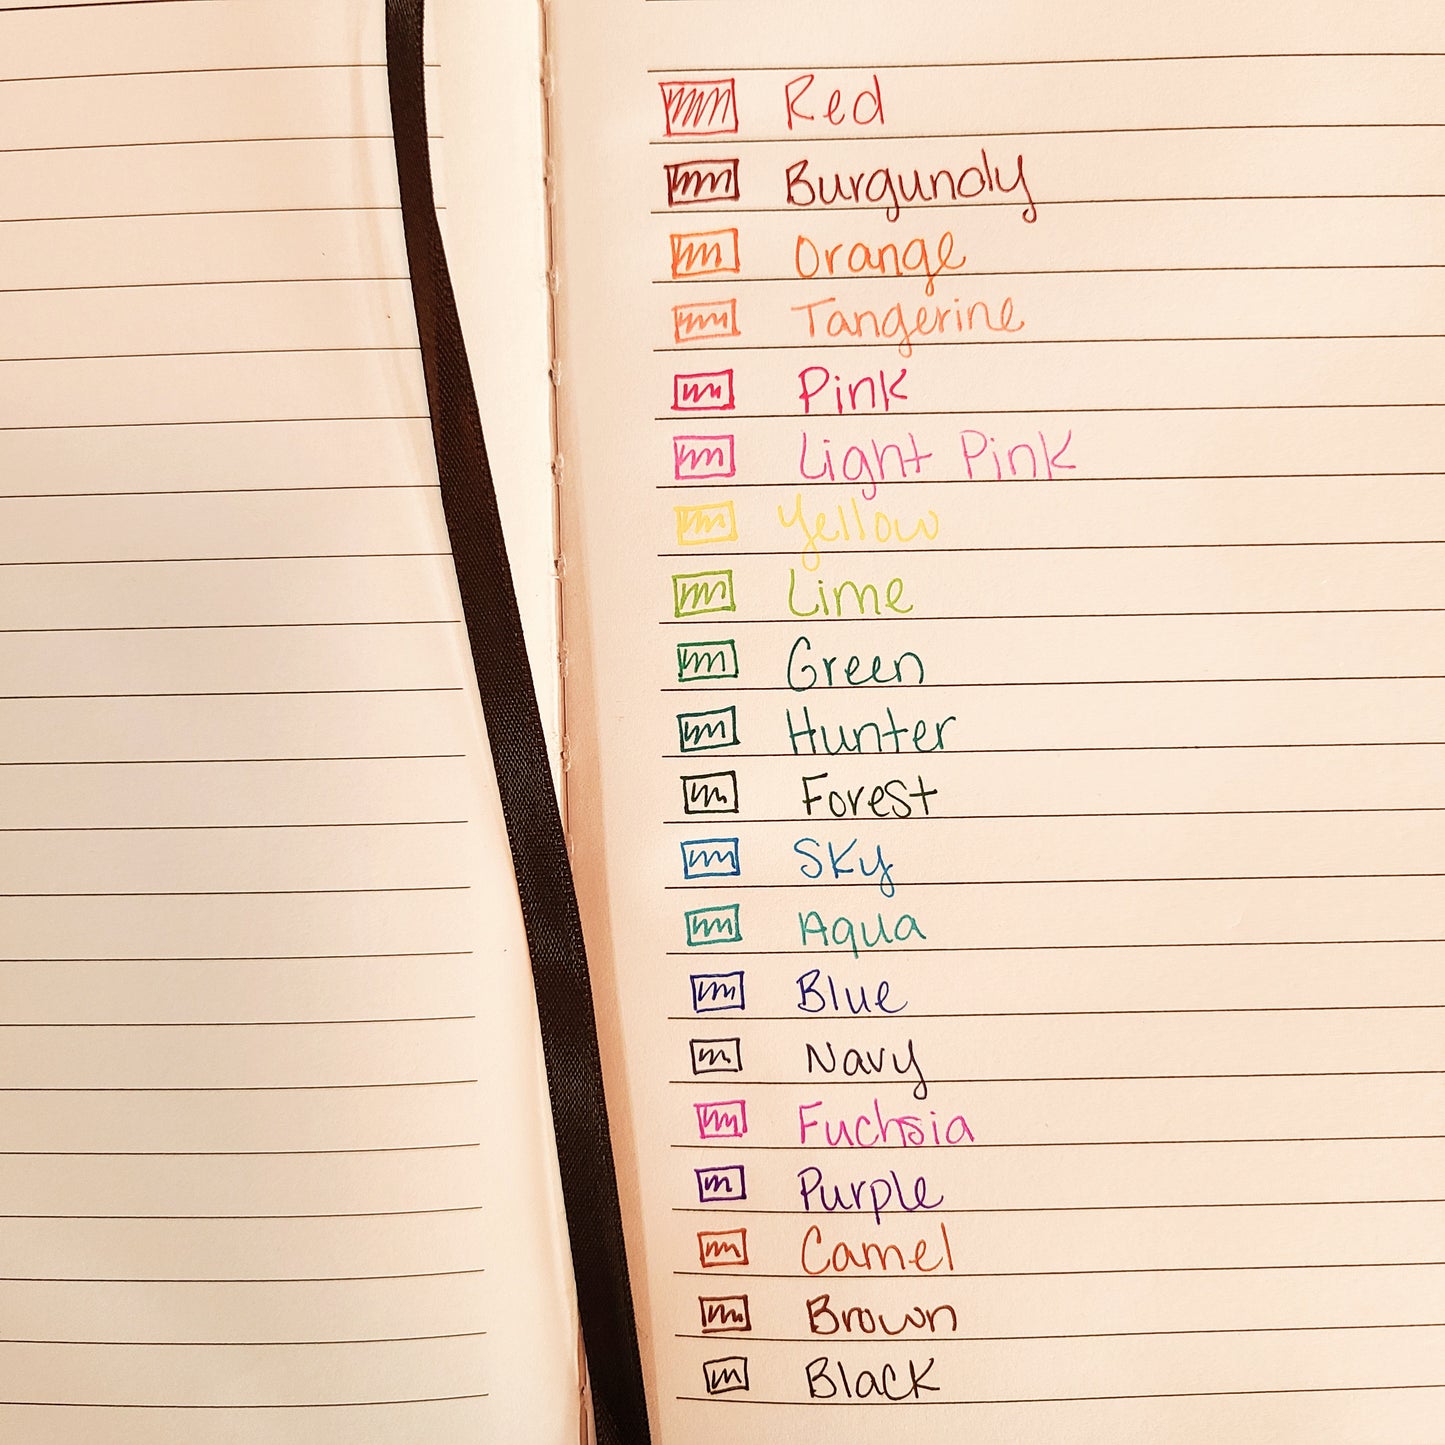 Red
Burgundy
Orange
Tangerine
Pink
Light Pink
Yellow
Lime
Green
Hunter
Forest
Sky
Aqua
Blue
Navy
Fuchsia
Purple
Camel
Brown
Black